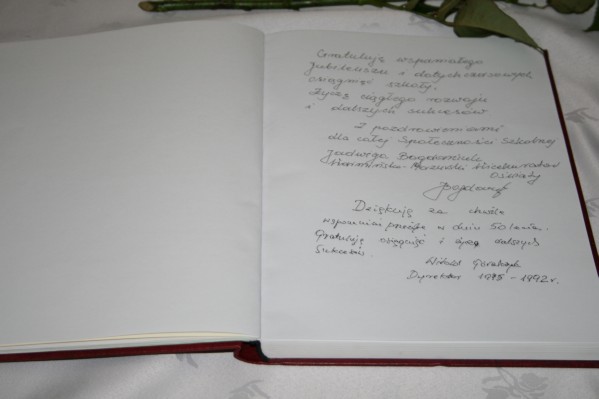 Gratuluję wspaniałego
jubileuszu i dotychczasowych
osiągnięć szkoły.
Życzę ciągłego rozwoju
i dalszych sukcesów
Z pozdrowieniami
dla całej Społeczności Szkolnej
Jadwiga Bogdaniuk
Warmińsko-Mazurski Wicekurator
Oświaty
Dziękuję za chwile
wspomnień przeżyte w dniu 50-lecia.
Gratuluję osiągnięć i życzę dalszych
sukcesów.
Witold
Dyrektor 1975-1992 r.